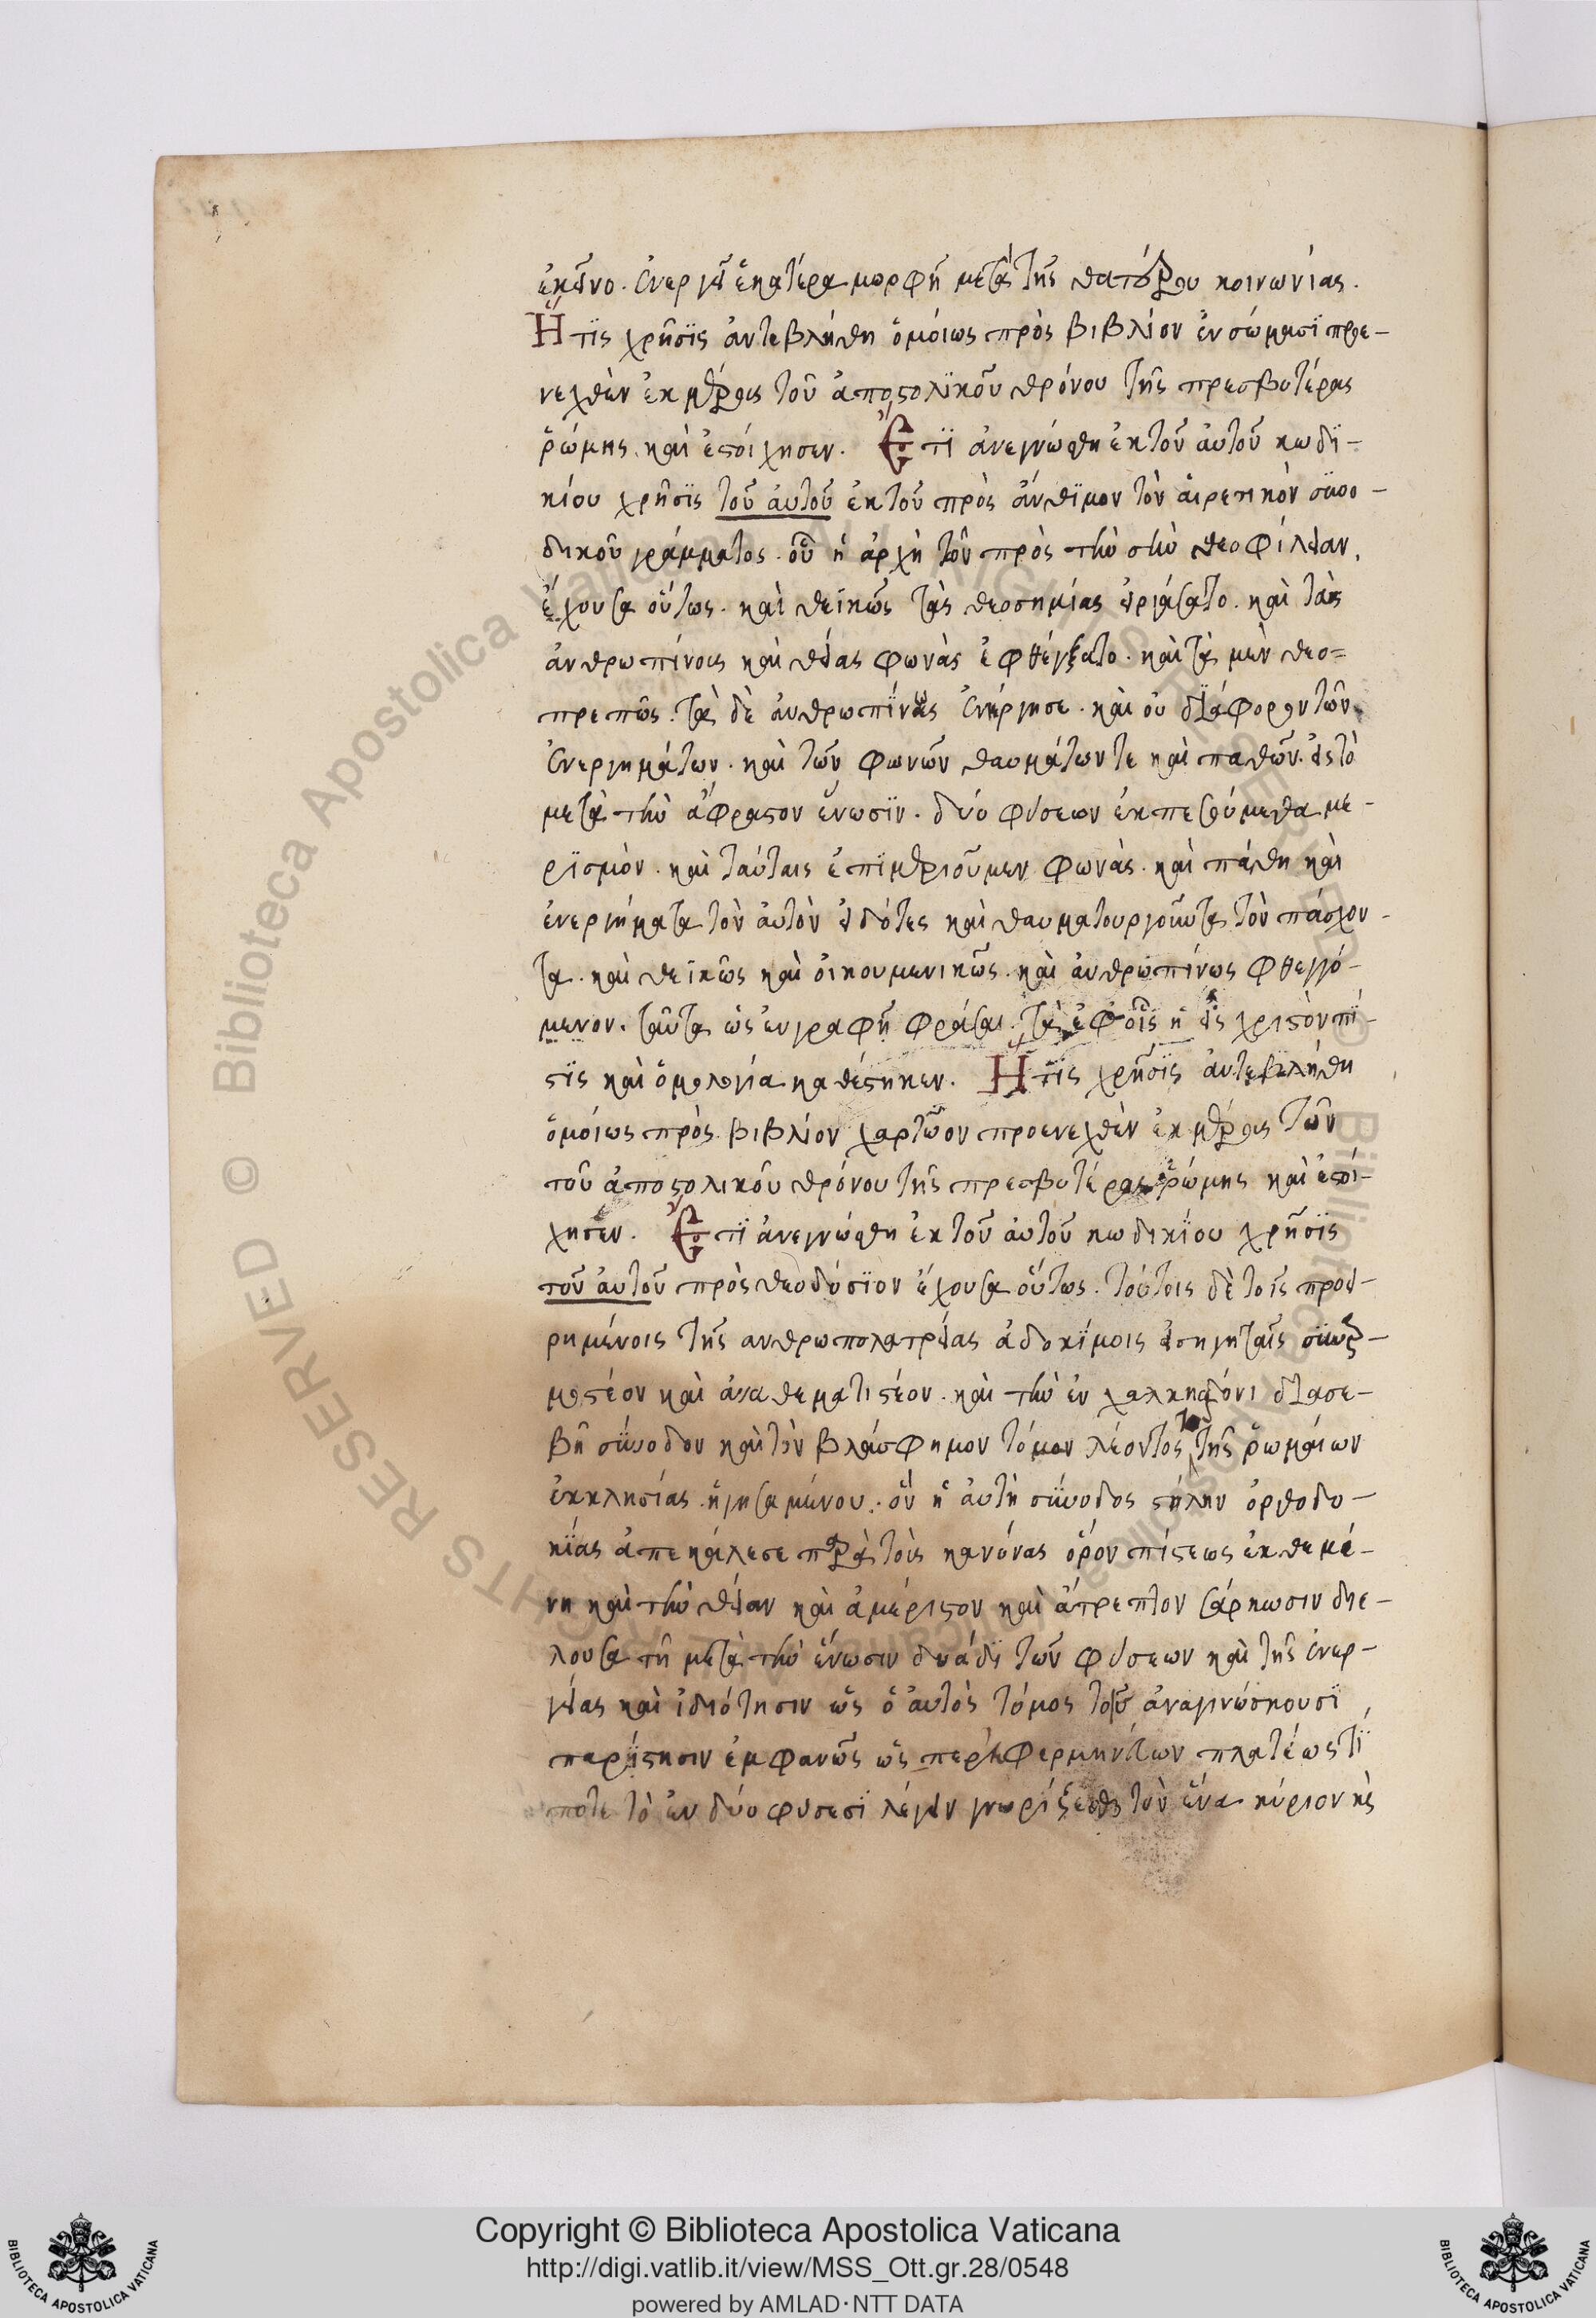 ἐκεῖνο. ἐνεργεῖ ἑκατέρα μορφὴ μετὰ τῆς θατέρου κοινωνίας.
Ἥτις χρῆσις ἀντεβλήθη ὁμοίως πρὸς βιβλίον ἐν σώμασι προε-
νεχθὲν ἐκ μέρους τοῦ ἀποστολικοῦ θρόνου τῆς πρεσβυτέρας
ῥώμης καὶ ἐστοίχησεν. Ἔτι ἀνεγνώσθη ἐκ τοῦ αὐτοῦ κωδι-
κίου χρῆσις τοῦ αὐτοῦ ἐκ τοῦ πρὸς ἄνθιμον τὸν αἱρετικὸν συνο-
δικοῦ γράμματος. οὗ ἡ ἀρχὴ τῶν πρὸς τὴν σὴν θεοφίλειαν,
ἔχουσα οὕτως. καὶ θεϊκῶς τὰς θεοσημίας εἰργάσατο. καὶ τὰς
ἀνθρωπίνους καὶ θείας φωνὰς ἐφθέγξατο. καὶ τὰ μὲν θεο=
πρεπῶς. τὰ δὲ ἀνθρωπίνως ἐνήργησε. καὶ οὐ διάφορον τῶν
ἐνεργημάτων. καὶ τῶν φωνῶν θαυμάτων τε καὶ παθῶν. εἰς τὸ
μετὰ τὴν ἄφραστον ἕνωσιν. δύο φύσεων ἐκπεσούμεθα με-
ρισμὸν. καὶ ταύταις ἐπιμεριοῦμεν φωνὰς. καὶ πάθη καὶ
ἐνεργήματα τὸν αὐτὸν εἰδότες καὶ θαυματουργοῦντα τὸν πάσχον-
τα. καὶ θεϊκῶς καὶ οἰκουμενικῶς. καὶ ἀνθρωπίνως φθεγγό-
μενον. ταῦτα ὡς ἐν γραφῇ φράσαι. τὰ ἐφ' οἷς ἡ εἰς χριστὸν πί-
στις καὶ ὁμολογία καθέστηκεν. Ἥτις χρῆσις ἀντεβλήθη
ὁμοίως πρὸς βιβλίον χαρτῶον προενεχθὲν ἐκ μέρους τῶν
τοῦ ἀποστολικοῦ θρόνου τῆς πρεσβυτέρας ῥώμης καὶ ἐστοί-
χησεν. Ἔτι ἀνεγνώσθη ἐκ τοῦ αὐτοῦ κωδικίου χρῆσις
τοῦ αὐτοῦ πρὸς θεοδόσιον ἔχουσα οὕτως. τούτοις δὲ τοῖς προει-
ρημένοις τῆς ανθρωπολατρείας ἀδοκίμοις εἰσηγηταῖς συναρι-
μοστέον καὶ ἀναθεματιστέον. καὶ τὴν ἐν χαλκηδόνι δυσσε-
βῆ σύνοδον καὶ τὸν βλάσφημον τόμον λέοντος τοῦ τῆς ῥωμαίων
ἐκκλησίας ἡγησαμένου. ὃν ἡ αὐτὴ σύνοδος στήλην ὀρθοδο-
ξίας ἀπεκάλεσε παρὰ τοὺς κανόνας ὅρον πίστεως ἐκθεμέ-
νη καὶ τὴν θείαν καὶ ἀμέριστον καὶ ἄτρεπτον σάρκωσιν διε-
λουσα τῇ μετὰ τὴν ἕνωσιν δυάδι τῶν φύσεων καὶ τῆς ἐνερ-
γείας καὶ ἰδιότησιν ὡς ὁ αὐτὸς τόμος τοῖς ἀναγινώσκουσι
παρίστησιν ἐμφανῶς ὡς πλατέως τί
ποτε τὸ ἐν δύο φύσεσι λέγειν γνωρίζεσθαι τὸν ἕνα κύριον κὲς
Copyright © Biblioteca Apostolica Vaticana
http://digi.vatlib.it/view/MSS_Ott.gr.28/0548
powered by AMLAD·NTT DATA
BIBLIOTECA APOSTOLICA VATICANA
BIBLIOTECA APOSTOLICA VATICANA